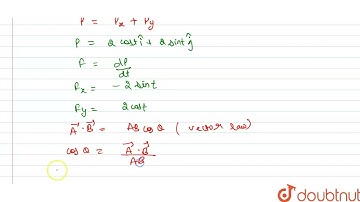 P = Px + Py
P = 2 cost î + 2 sint ĵ
F = dP/dt
Fx = - 2 sint
Fy = 2 cost
A⃗ · B⃗ = AB cos θ ( vector law)
cos θ = A⃗ · B⃗ / AB
doubtnut